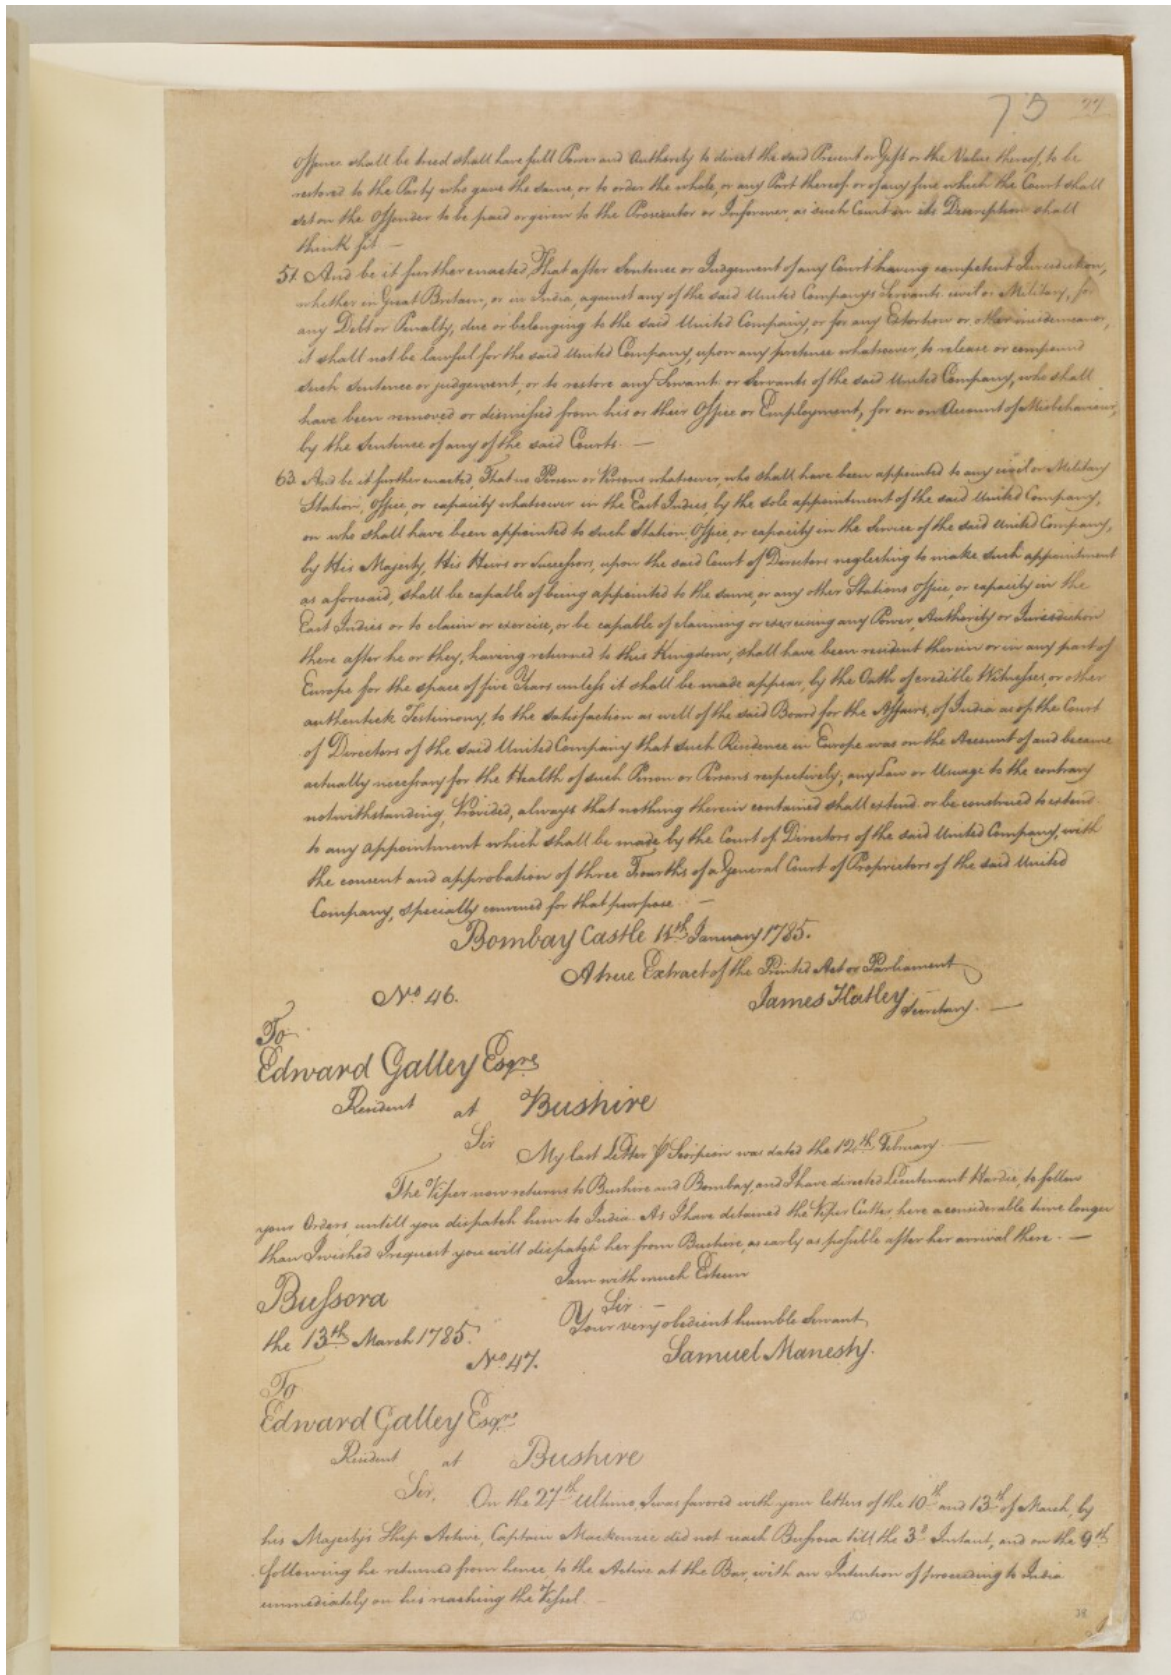 75 77
Offence shall be tried shall have full Power and Authority to direct the said Present or Gift or the Value thereof, to be
restored to the Party who gave the same, or to order the whole, or any Part thereof or of any fine which the Court shall
set on the Offender to be paid or given to the Prosecutor or Informer, as such Court in its Discreption shall
think fit —
51. And be it further enacted, That after Sentence or Judgement of any Court having competent Jurisdiction,
whether in Great Britain, or in India, against any of the said United Companys Servants civil or Military, for
any Debt or Penalty, due or belonging to the said United Company, or for any Extortion or other misdemeanor,
it shall not be lawful for the said United Company, upon any pretence whatsoever, to release or compound
such Sentence or judgement, or to restore any Servant or Servants of the said United Company, who shall
have been removed or dismissed from his or their Office or Employment, for or on Account of Misbehaviour,
by the Sentence of any of the said Courts. —
63. And be it further enacted, That no Person or Persons whatsoever, who shall have been appointed to any civil or Military
Station, Office, or capacity whatsoever in the East Indies, by the sole appointment of the said United Company,
on who shall have been appointed to such Station, Office, or capacity in the Service of the said United Company,
by His Majesty, His Heirs or Successors, upon the said Court of Directors neglecting to make such appointment
as aforesaid, shall be capable of being appointed to the same, or any other Stations office, or capacity in the
East Indies or to claim or exercise, or be capable of claiming or exercising any Power, Authority or Jurisdiction
there after he or they, having returned to this Kingdom, shall have been resident therein or in any part of
Europe for the space of five Years unless it shall be made appear, by the Oath of credible Witnesses, or other
authentick Testimony, to the satisfaction as well of the said Board for the Affairs, of India as of the Court
of Directors of the said United Company that such Residence in Europe was on the Account of and became
actually necessary for the Health of such Person or Persons respectively; any Law or Usuage to the contrary
notwithstanding, Provided, always that nothing therein contained shall extend or be construed to extend
to any appointment which shall be made by the Court of Directors of the said United Company, with
the consent and approbation of three Fourths of a General Court of Proprietors of the said United
Company, specially convened for that purpose. —
Bombay Castle 11th January 1785.
A true Extract of the Printed Act or Parliament
No 46.
James Hatley Secretary. —
To
Edward Galley Esqre
Resident at Bushire
Sir
My last Letter ⅌ Scorpion was dated the 12th February. —
The Viper now returns to Bushire and Bombay, and I have directed Lieutenant Hardie, to follow
your Orders, untill you dispatch him to India. As I have detained the Viper Cutter, here a considerable time longer
than I wished I request you will dispatch her from Bushire, as early as possible after her arrival there. —
I am with much Esteem
Bussora
Sir —
Your very obedient humble Servant,
the 13th March 1785.
Samuel Manesty.
No 47.
To
Edward Galley Esqre
Resident at Bushire
Sir, On the 27th Ultimo, I was favored with your letters of the 10th and 13th of March, by
his Majestys Ship Active, Captain Mackenzie did not reach Bussora till the 3d Instant, and on the 9th
following he returned from hence, to the Active at the Bar, with an Intention of proceeding to India
immediately on his reaching the Vessel. —
38